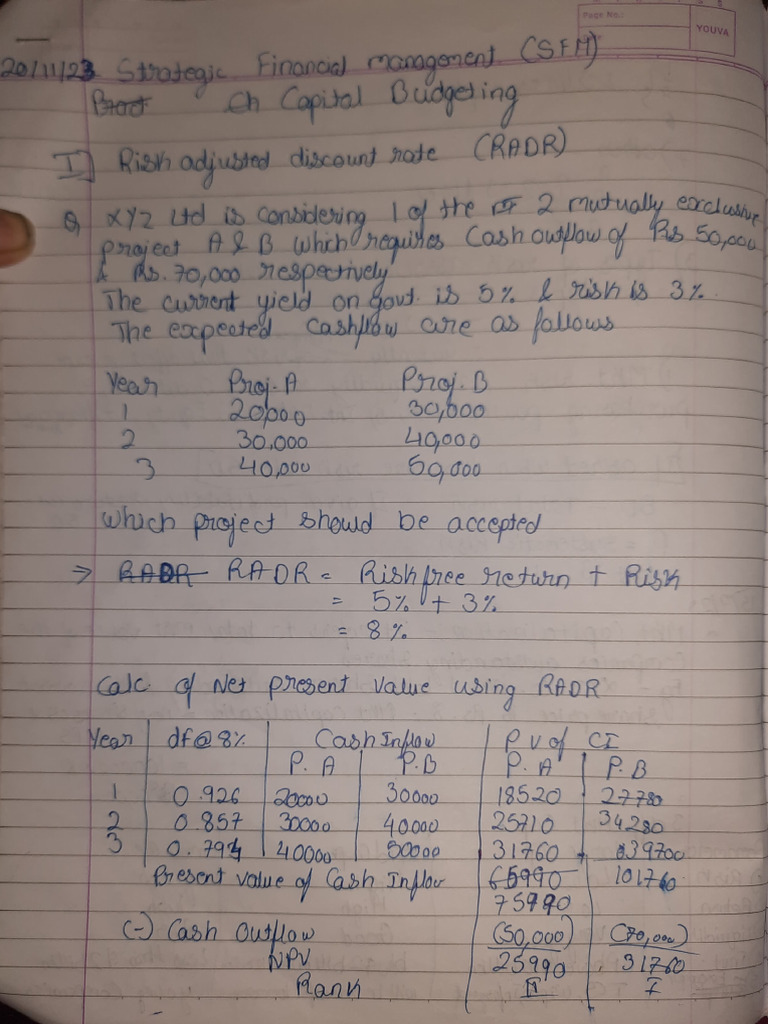 Page No.:
YOUVA
20/11/23 Strategic Financial management (SFM)
Ch Capital Budgeting
I] Risk adjusted discount rate (RADR)
Q XYZ Ltd is considering 1 of the 2 mutually exclusive
project A & B which requires Cash outflow of Rs 50,000
& Rs. 70,000 respectively
The current yield on govt. is 5% & risk is 3%.
The expected cashflow are as follows
Year Proj. A Proj. B
1 20,000 30,000
2 30,000 40,000
3 40,000 50,000
which project should be accepted
⇒ RADR RADR = Risk free return + Risk
= 5% + 3%
= 8%
Calc. of Net present value using RADR
Year df@8% Cash Inflow P V of CI
P. A P.B P. A P.B
1 0.926 20000 30000 18520 27780
2 0.857 30000 40000 25710 34280
3 0.794 40000 50000 31760 39700
Present value of Cash Inflow 65990 101760
75990
(-) Cash Outflow (50,000) (70,000)
NPV 25990 31760
Rank II I